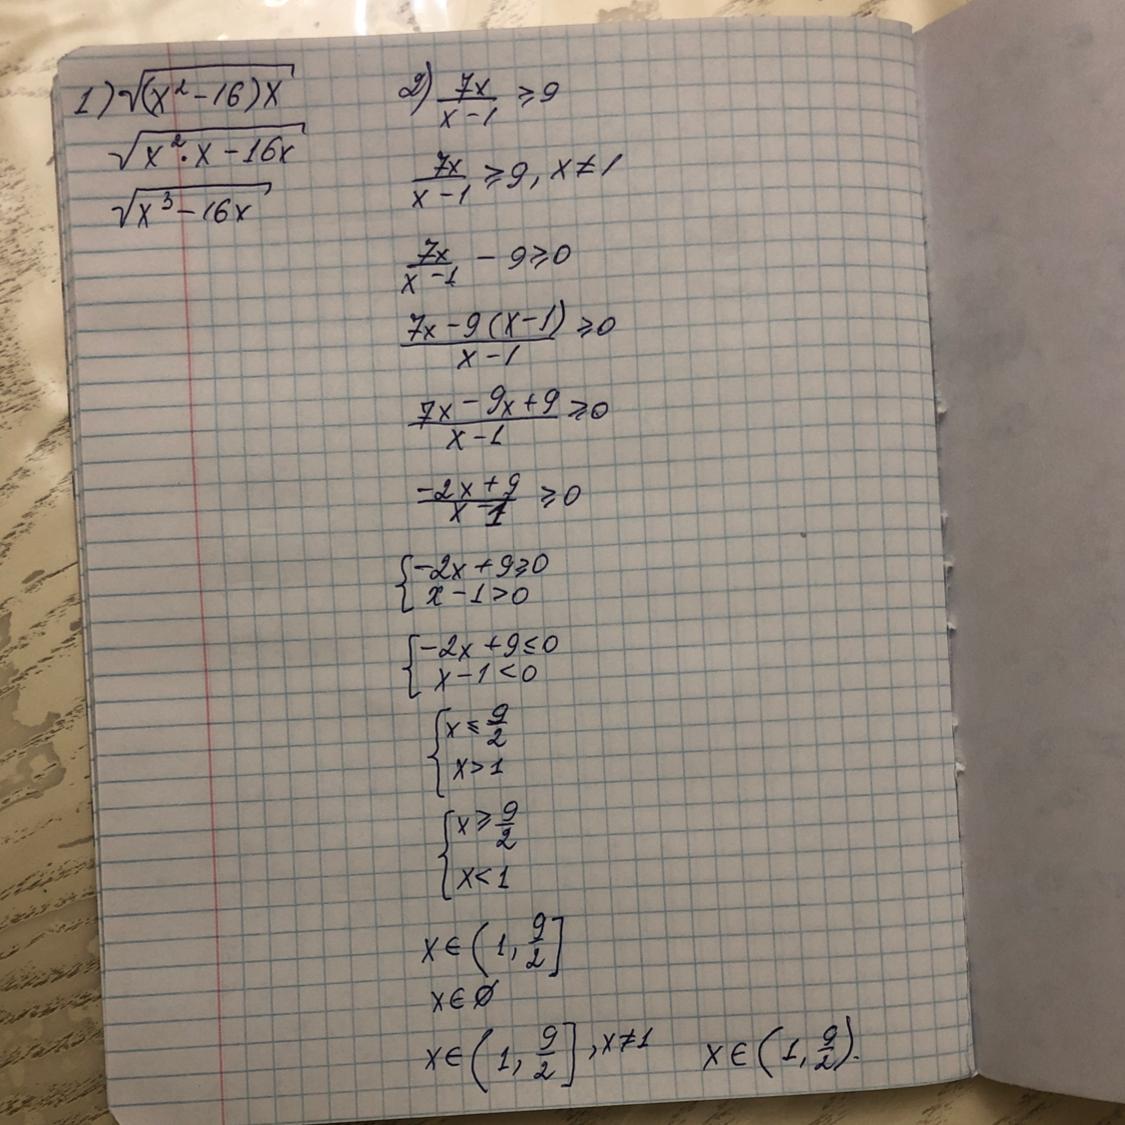 1) √((x² - 16)x)
√(x² · x - 16x)
√(x³ - 16x)
2) 7x/(x - 1) ⩾ 9
7x/(x - 1) ⩾ 9, x ≠ 1
7x/(x - 1) - 9 ⩾ 0
(7x - 9(x - 1))/(x - 1) ⩾ 0
(7x - 9x + 9)/(x - 1) ⩾ 0
(-2x + 9)/(x - 1) ⩾ 0
{ -2x + 9 ⩾ 0
x - 1 > 0
{ -2x + 9 ⩽ 0
x - 1 < 0
{ x ⩽ 9/2
x > 1
{ x ⩾ 9/2
x < 1
x ∈ (1, 9/2]
x ∈ ∅
x ∈ (1, 9/2], x ≠ 1 x ∈ (1, 9/2).